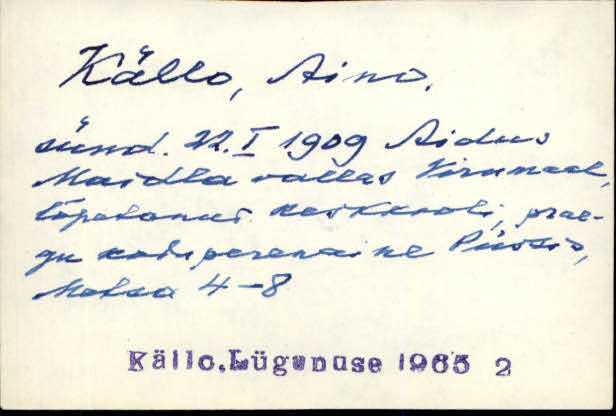 Källo, Aino.
sünd. 22. I 1909 Aidus
Maidla vallas Virumaal,
lõpetanud keskkooli, prae-
gu koduperenaine Püssis,
Metsa 4-8
Källo, Lüganuse 1965 2